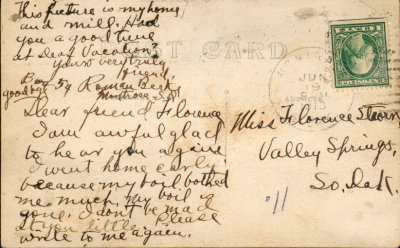 This picture is my home
and mill. Had
you a good time
at Dear Vacation
Yours very truly
friend.
Box 54 Roman
good bye Montrose S.D.
POST CARD
Dear friend Florence
I am awful glad
to hear you again
I went home early
because my boil bothed
me much, my boil is
gone. I don't be mad
at you little. Please
write to me again.
JUN
19
1915
ADDRESS
Miss Florence
Valley Springs,
So. Dak.
11